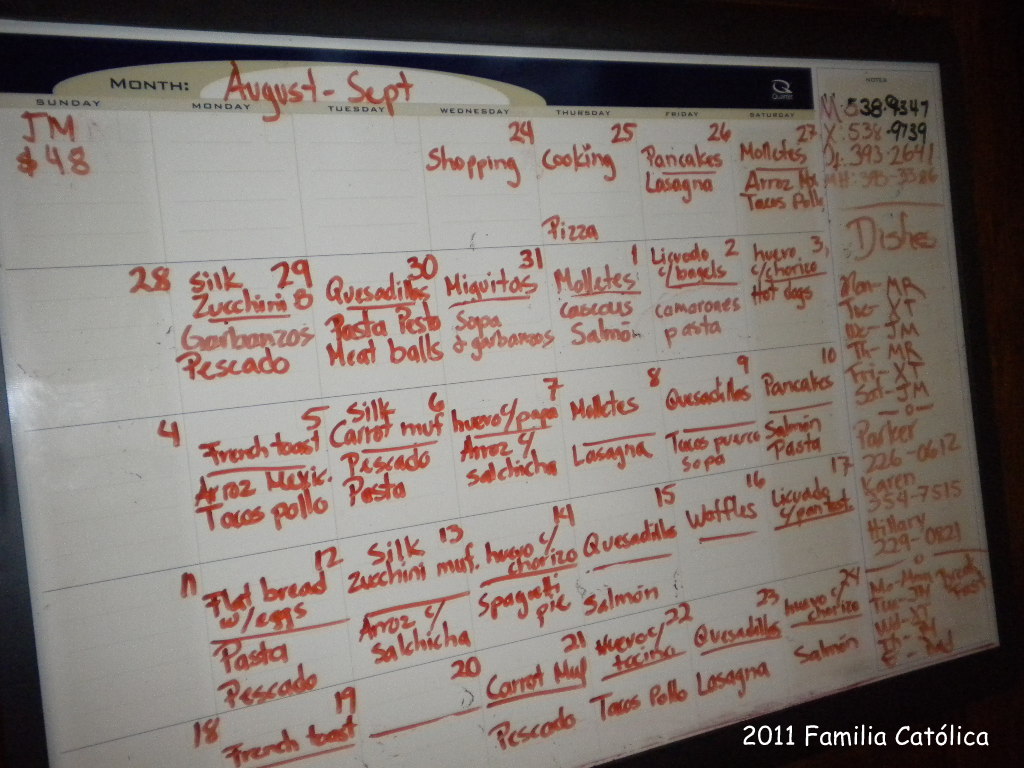 MONTH: August - Sept
SUNDAY MONDAY TUESDAY WEDNESDAY THURSDAY FRIDAY SATURDAY
Quartet
JM
$ 48
24
Shopping
25
Cooking
Pizza
26
Pancakes
Lasagna
27
Molletes
Arroz Mx
Tacos Pollo
28
29
Silk
Zucchini B
Garbanzos
Pescado
30
Quesadillas
Pasta Pesto
Meat balls
31
Miguitas
Sopa
d garbanzos
1
Molletes
couscous
Salmón
2
Licuado
c/bagels
camarones
pasta
3
huevo
c/chorizo
Hot dogs
4
5
French toast
Arroz Mexic.
Tacos pollo
6
Silk
Carrot muf
Pescado
Pasta
7
huevo c/papa
Arroz c/
salchicha
8
Molletes
Lasagna
9
Quesadillas
Tacos puerco
sopa
10
Pancakes
Salmón
Pasta
11
12
Flat bread
w/eggs
Pasta
Pescado
13
Silk
Zucchini muf.
Arroz c/
Salchicha
14
huevo c/
chorizo
Spagueti
pie
15
Quesadilla
Salmón
16
Waffles
17
Licuado
c/pan tost.
18
19
French toast
20
21
Carrot Muf
Pescado
22
Huevo c/
tocino
Tacos Pollo
23
Quesadillas
Lasagna
24
huevo c/
chorizo
Salmón
NOTES
M: 538-9347
X: 538-9739
393-2641
MH: 393-3386
Dishes
Mon- MR
Tue- XT
We- JM
Th- MR
Fri- XT
Sat- JM
Parker
226-0612
Karen
354-7515
Hillary
229-0821
Tue- JM
2011 Familia Católica